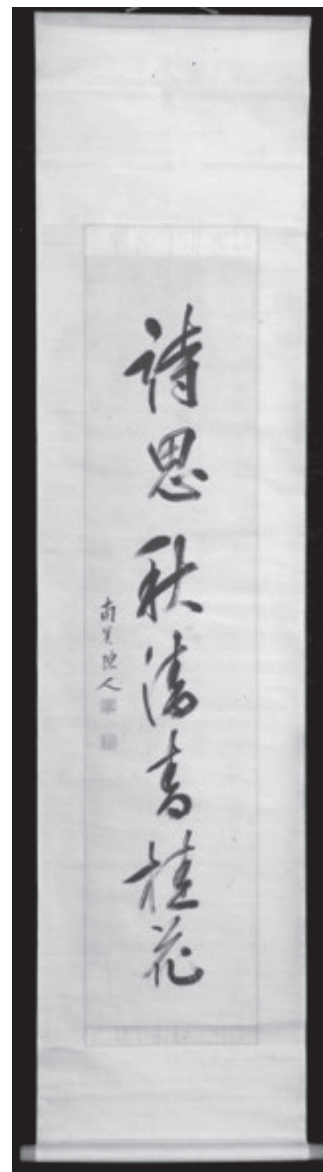 詩思秋清香桂花
南陳人